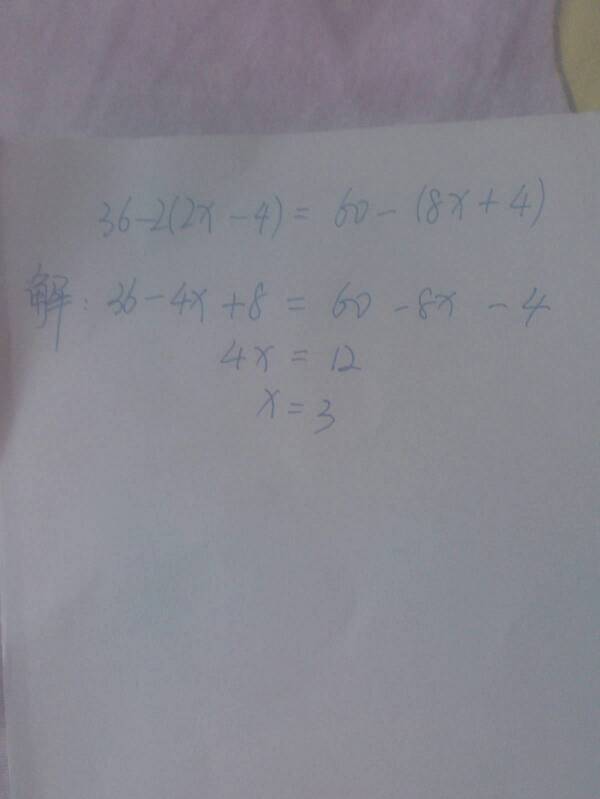 36-2(2x-4)=60-(8x+4)
解:36-4x+8=60-8x-4
4x=12
x=3